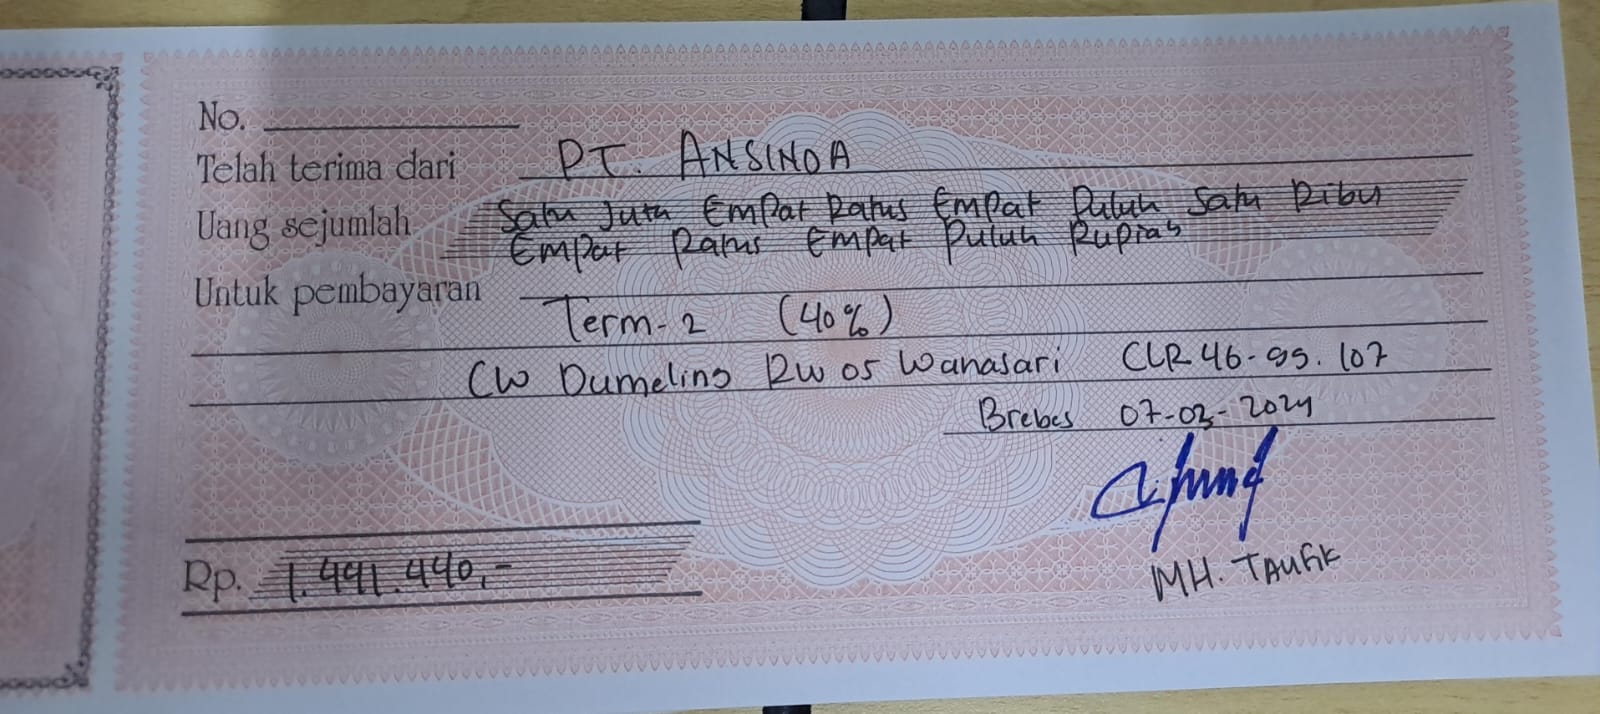 No.
Telah terima dari PT. ANSINDA
Uang sejumlah Satu Juta Empat Ratus Empat Puluh Satu Ribu
Empat Ratus Empat Puluh Rupiah
Untuk pembayaran
Term-2 (40%)
CW Dumeling RW 05 Wanasari CLR 46-99.107
Brebes 07-03-2024
Rp. 1.441.440,-
MH. TAUFIK